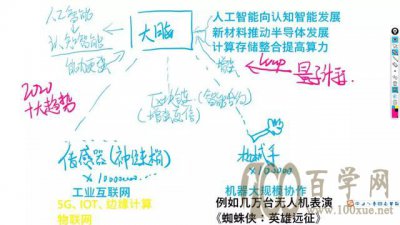 人工智能
认知智能
大脑
人工智能向认知智能发展
新材料推动半导体发展
计算存储整合提高算力
增强
量子计算
2020
十大趋势
区块链(智能合约)
(增强互信)
传感器(神经末梢)
x1000000
机械手
x100000
工业互联网
5G、IOT、边缘计算
物联网
机器大规模协作
例如几万台无人机表演
《蜘蛛侠:英雄远征》
100百学网
www.100xue.net